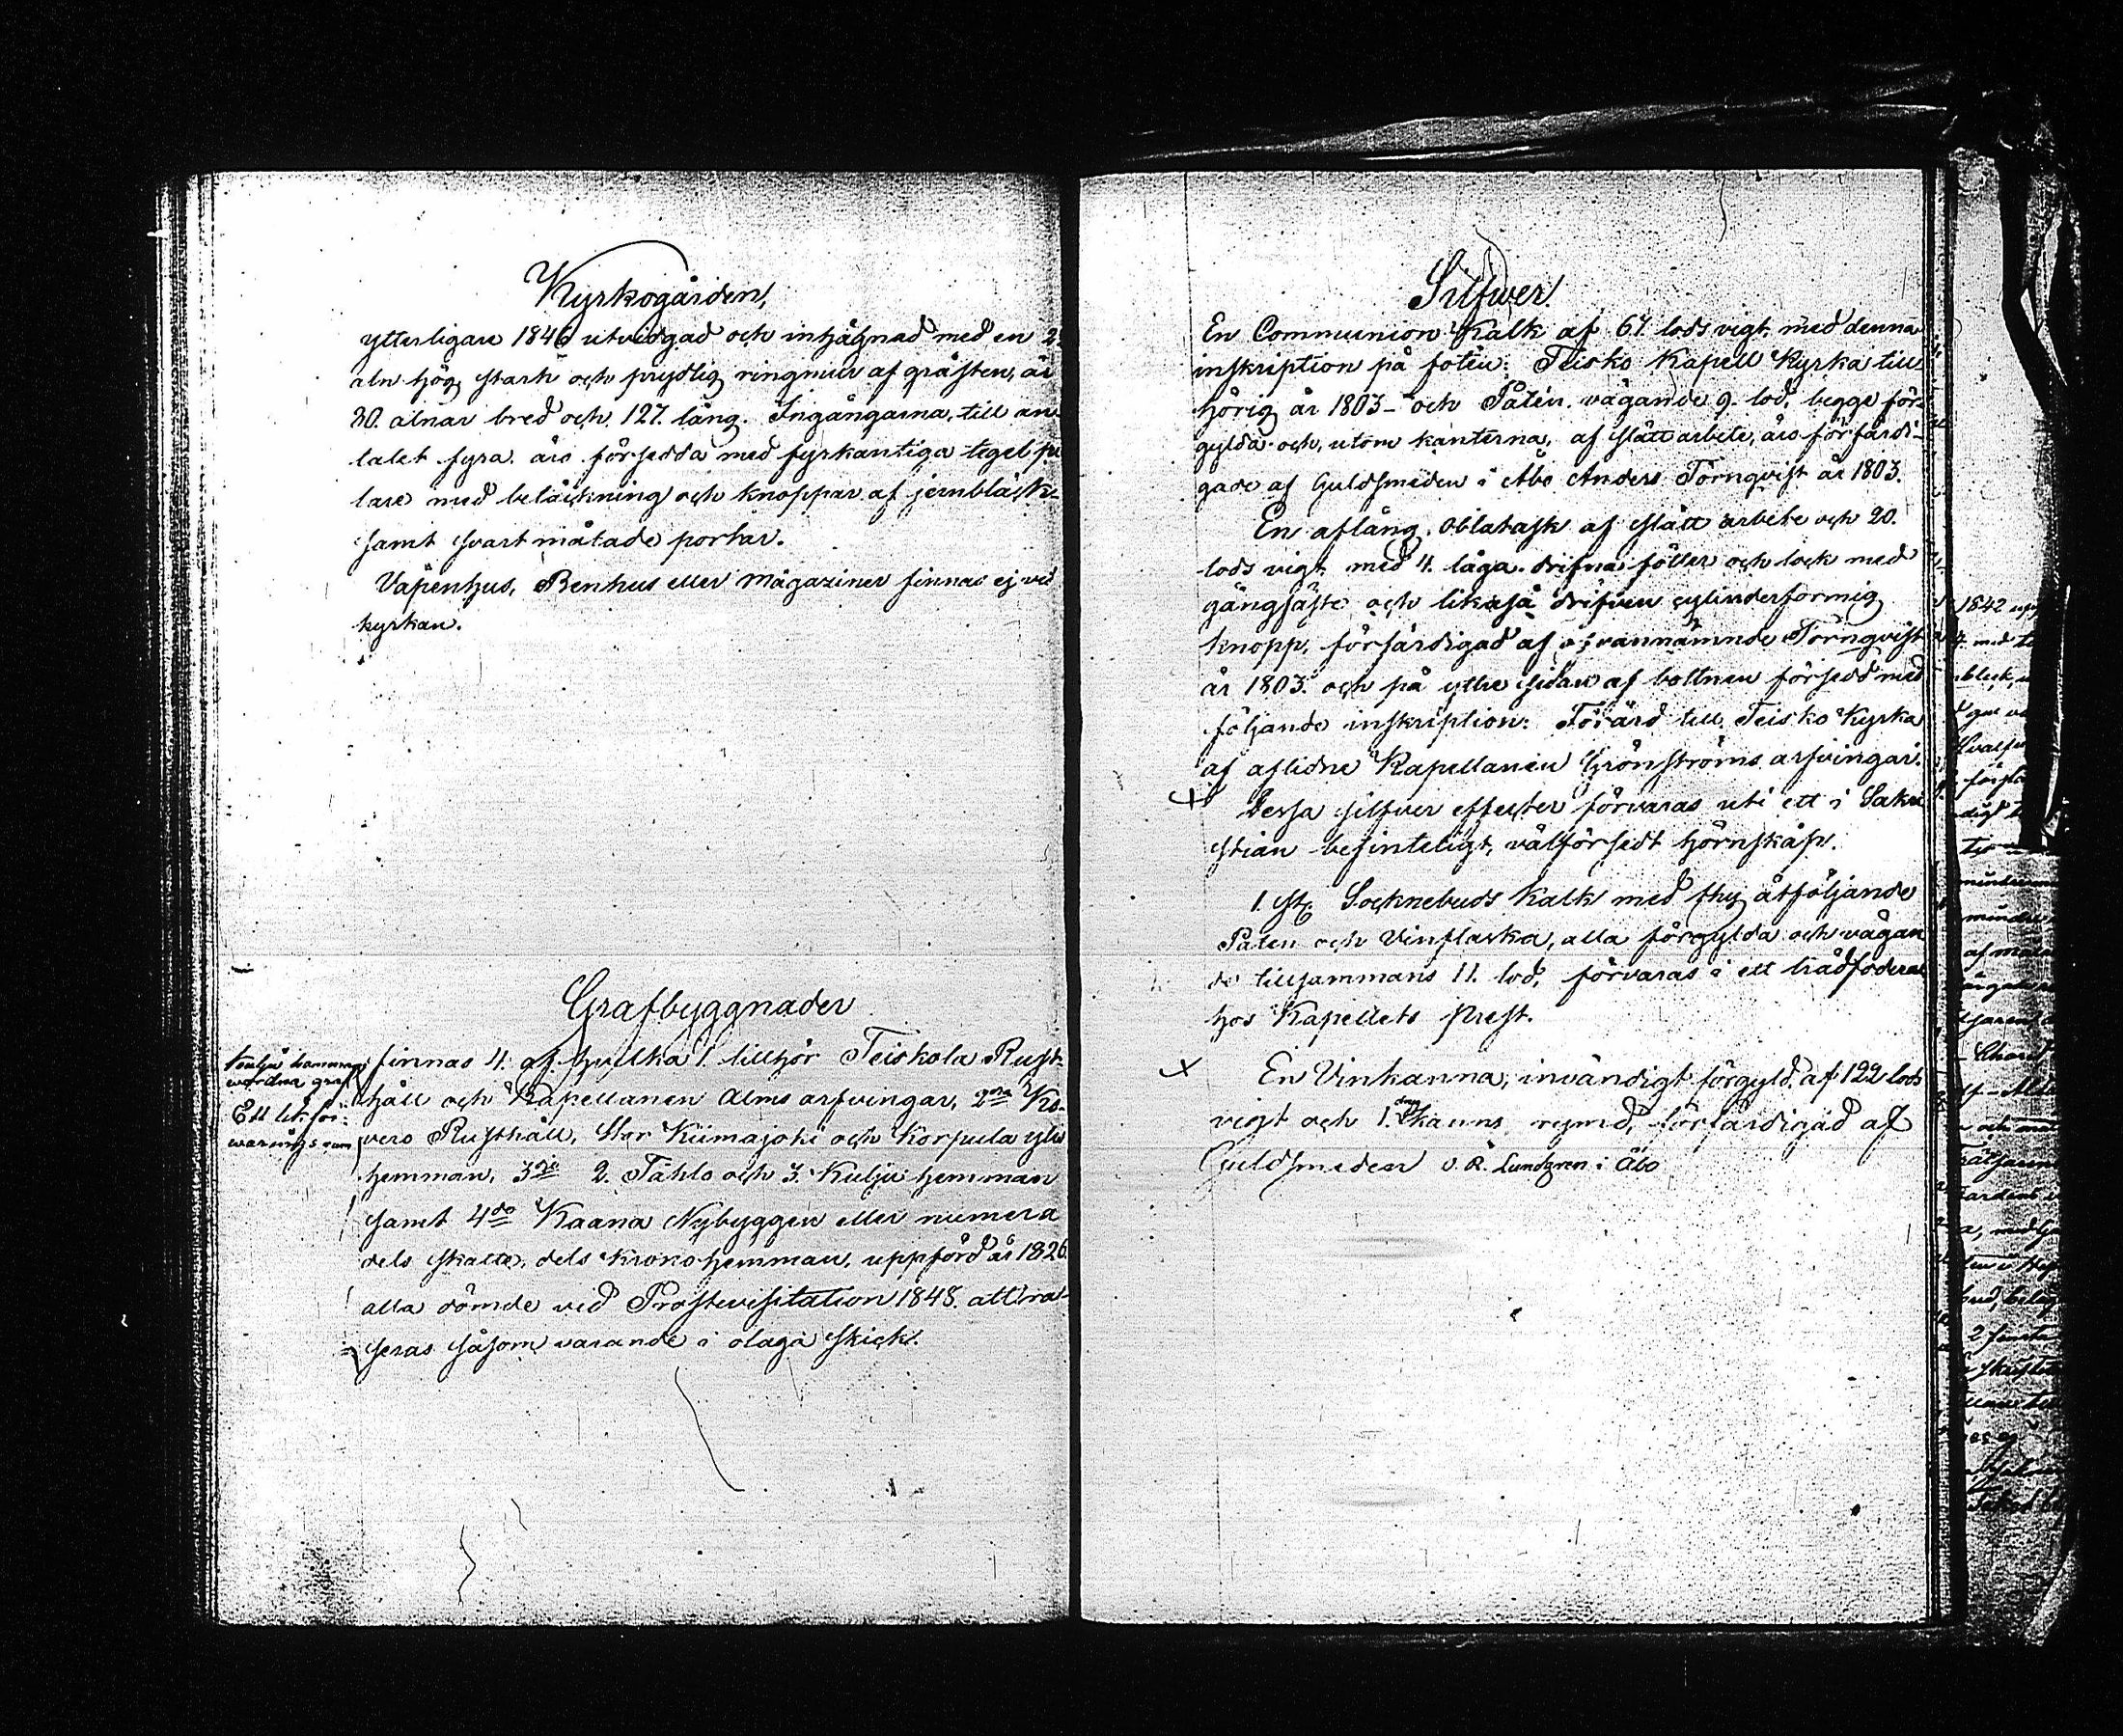 Kyrkogården,
ytterligare 1846 utvidgad och inhägnad med en 2
aln hög, stark och prydlig ringmur af gråsten, är
30. alnar bred och 127. lång. Ingångarna, till an-
talet fyra. äro försedda med fyrkantiga tegel pe
lare med beläckning och knoppar af jernbläck
samt svart målade portar.
Vapenhus, Benhus eller Magaziner finnas ej vid
kyrkan.
Grafbyggnader
finnas 4. af hvilka 1. tillhör Teiskola Rust-
håll och Kapellanen Alms arfvingar, 2ra Ko-
vero Rusthåll, Stor Kiimajoki och Korpula
hemman, 3je 2. Tähti och 3. Kulju hemman
samt 4de Kaana Nybyggen eller numera
dels skatte, dels krono hemman, uppförd år 1826
alla dömde vid Prostevisitation 1848. att ra-
seras såsom varande i olaga skick.
graf
Ett lik för-
warings rum
Silfwer
En Communion Kalk af 67 lods vigt, med denna
inskription på foten: Teisko Kapell Kyrka till-
hörig år 1803- och Paten vägande 9. lod, begge för-
gylda och, utom kanterna, af slätt arbete, äro förfärdi-
gade af Guldsmeden i Åbo Anders Törnqvist år 1803.
En aflång, Oblatask af slätt arbete och 20.
lods vigt med 4. låga drifna fötter och lock med
gångfäste och likaså drifven cylinderformig
knopp, förfärdigad af ofvannämnde Törnqvist
år 1803. och på yttre sidan af bottnen försedd med
följande inskription: Förärd till Teisko Kyrka
af aflidne Kapellanen Grönströms arfvingar.
Dessa silfver effecter förvaras uti ett i Sakri
stian befinteligt, välförsedt hörnskåp.
1. st. Socknebuds Kalk med thy åtföljande
Paten och Vinflaska, alla förgylda och vägan
de tillsammans 11. lod, förvaras i ett trädfoderal
hos Kapellets Prest.
En Vinkanna, invändigt förgyld, af 122 lods
vigt och 1. kanns rymd, förfärdigad af
Guldsmeden J. R. Lundgren i Åbo